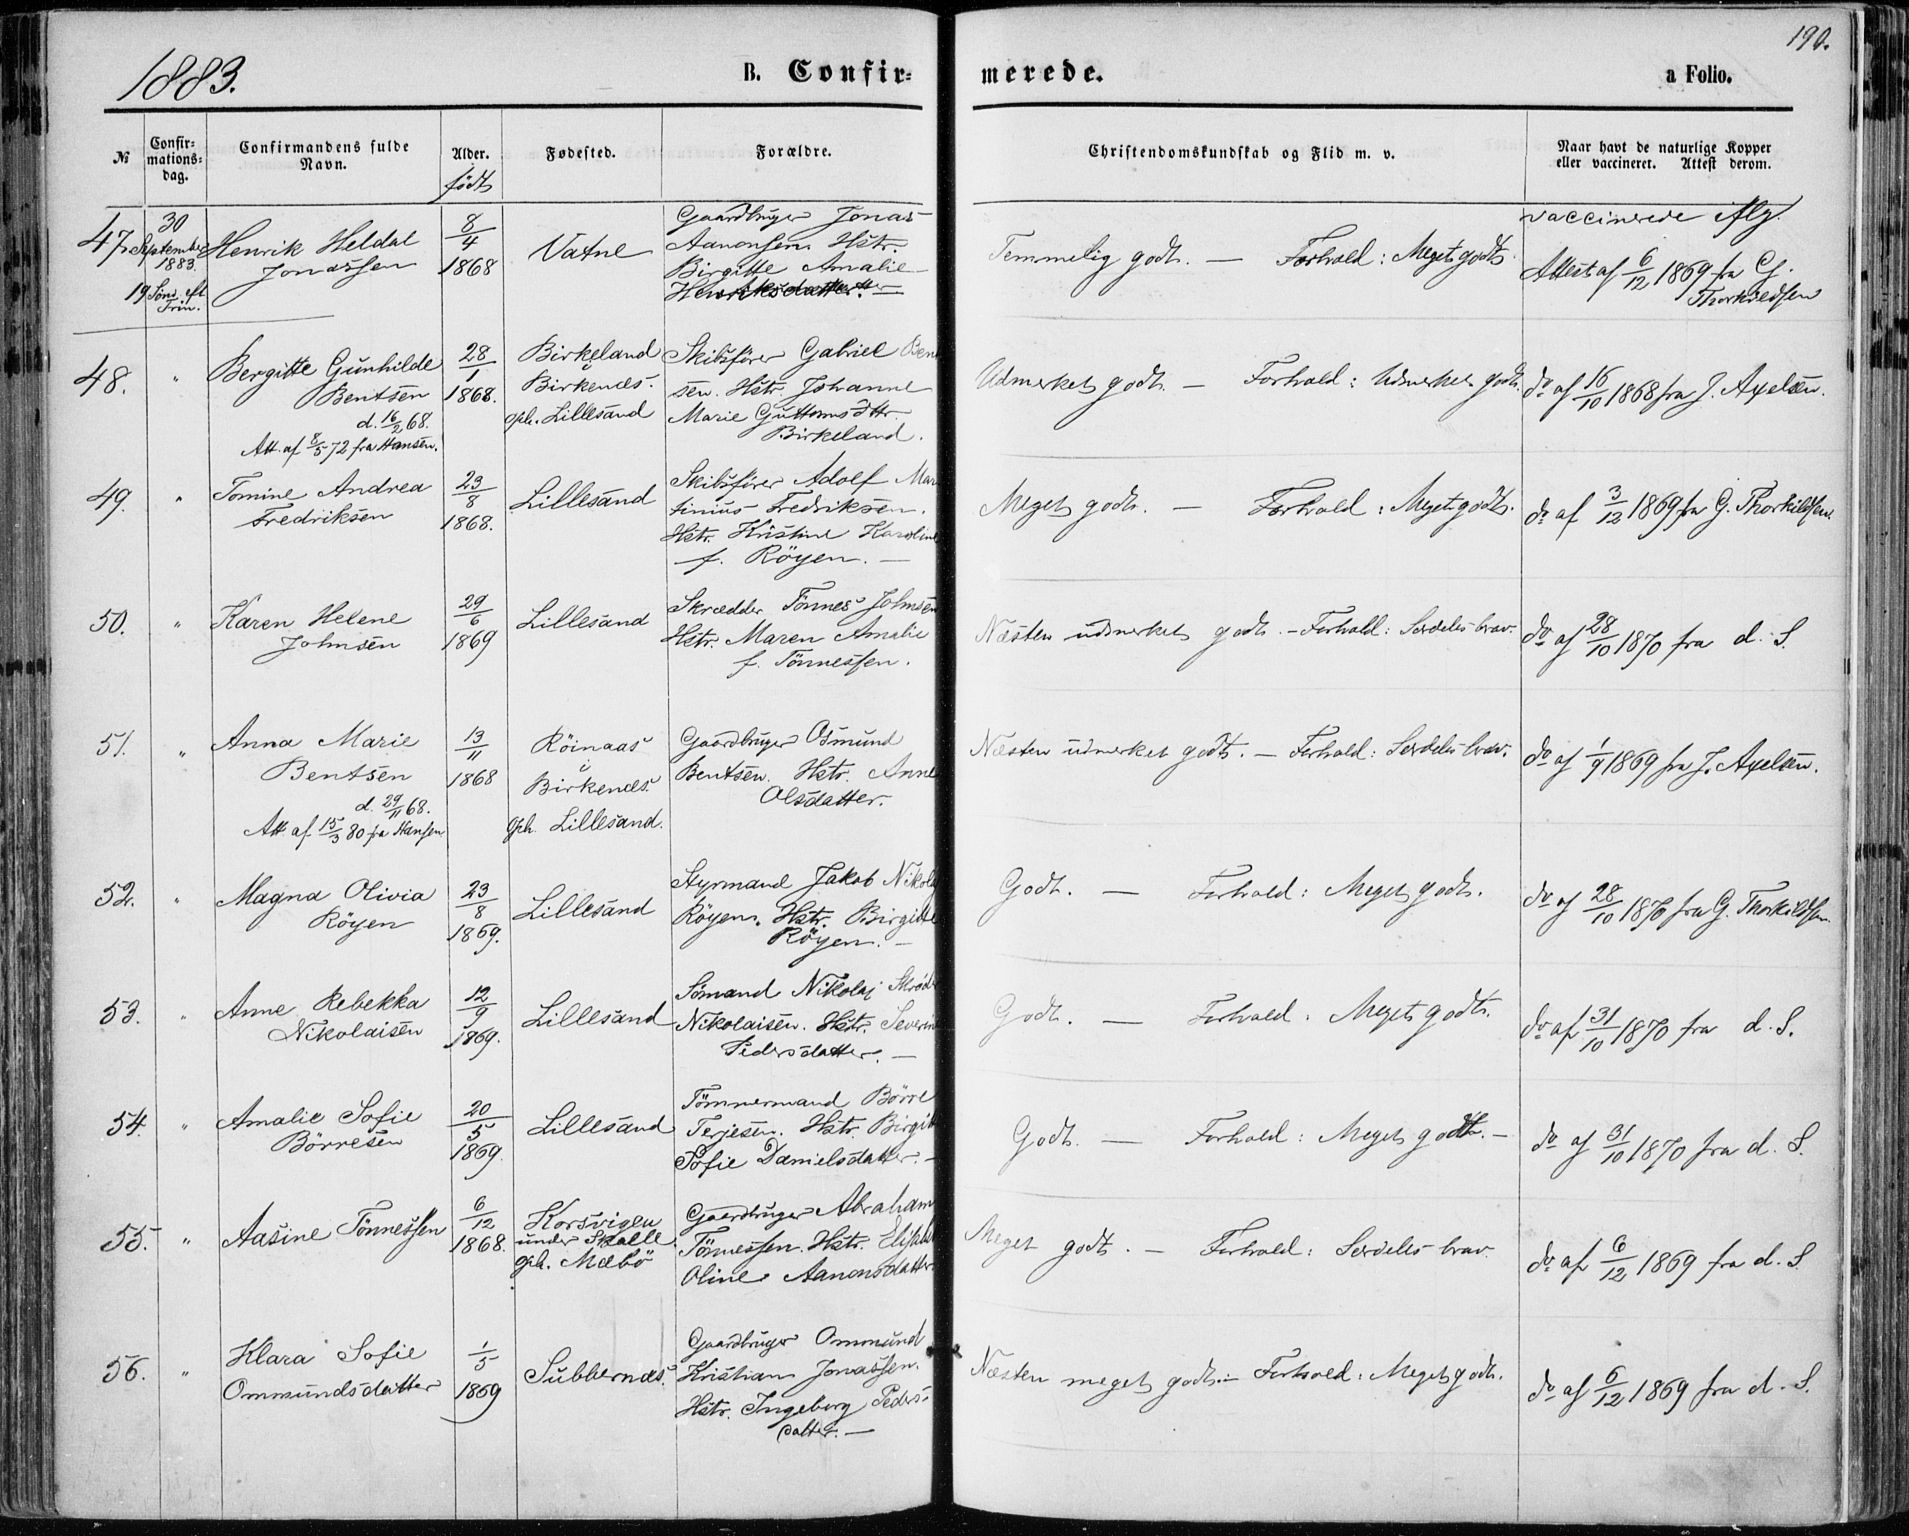 190.
1883.
B. Confir-
merede.
a Folio.
№
Confir-
mations-
dag.
Confirmandens fulde
Navn.
Alder.
født
Fødested.
Forældre.
Christendomskundskab og Flid m. v.
Naar havt de naturlige Kopper
eller vaccineret. Attest derom.
47.
30
September
1883.
19 Sønd. eft
Trin.
Henrik Heldal
Jonassen
8/4
1868
Vatne
Gaardbruger Jonas
Aanonsen Hstr.
Birgitte Amalie
Henriksdatter. —
Temmelig godt. — Forhold: Meget godt.
vaccinerede iflg.
Attest af 6/12 1869 fra G.
Thorkildsen
48.
"
Bergitte Gunhilde
Bentsen
d. 16/2 68.
Att. af 8/5 72 fra Hansen.
28/1
1868.
Birkeland
i
Birkenes.
gph. Lillesand
Skibsfører Gabriel Bent
sen. Hstr. Johanne
Marie Guttormsdttr.
Birkeland.
Udmerket godt. — Forhold: Udmerket godt.
do af 16/10 1868 fra J. Axelsen.
49.
"
Tomine Andrea
Fredriksen
23/8
1868.
Lillesand
Skibsfører Adolf Mar
tinius Fredriksen.
Hstr. Kristine Karoline
f. Röyen. —
Meget godt. — Forhold: Meget godt.
do af 3/12 1869 fra G. Thorkildsen.
50.
"
Karen Helene
Johnsen
29/6
1869
Lillesand
Skrædder Tönnes Johnsen
Hstr. Maren Amalie
f. Tönnessen.
Næsten udmerket godt. — Forhold: Særdeles brav.
do af 28/10 1870 fra d. S.
51.
"
Anna Marie
Bentsen
d. 29/11 68.
Att. af 15/3 80 fra Hansen
13/11
1868
Röinaas
i
Birkenes.
gph. Lillesand.
Gaardbruger Osmund
Bentsen. Hstr. Anne
Olsdatter.
Næsten udmerket godt. — Forhold: Særdeles brav.
do af 1/9 1869 fra J. Axelsen.
52.
"
Magna Olivia
Röyen
23/8
1869.
Lillesand
Styrmand Jakob Nikolai
Röyen. Hstr. Birgitte
Röyen. —
Godt. — Forhold: Meget godt.
do af 28/10 1870 fra G. Thorkildsen.
53.
"
Anne Rebekka
Nikolaisen
12/9
1869.
Lillesand
Sömand Nikolaj
Nikolaisen. Hstr. Severine
Pedersdatter. —
Godt. — Forhold: Meget godt.
do af 31/10 1870 fra d. S.
54.
"
Amalie Sofie
Börresen
20/5
1869.
Lillesand
Tömmermand Börre
Terjesen. Hstr. Birgitte
Sofie Danielsdatter. —
Godt. — Forhold: Meget godt. —
do af 31/10 1870 fra d. S.
55.
"
Aasine Tönnessen
6/12
1868.
Korsvigen
under Skalle
gph. Mæbö
Gaardbruger Abraham
Tönnessen. Hstr. Elisabet
Oline Aanonsdatter.
Meget godt. — Forhold: Særdeles brav.
do af 6/12 1869 fra d. S.
56.
"
Klara Sofie
Ommundsdatter
1/5
1869
Subbernæs.
Gaardbruger Ommund
Kristian Jonassen.
Hstr. Ingeborg Peders-
datter. —
Næsten meget godt. — Forhold: Meget godt.
do af 6/12 1869 fra d. S.